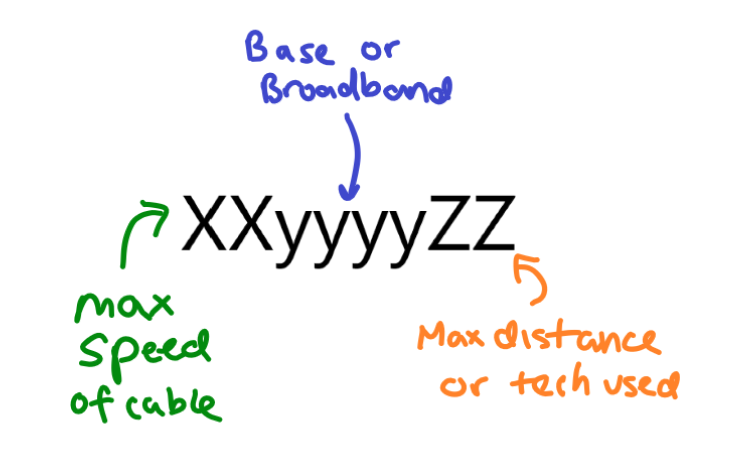 Base or
Broadband
XXyyyyZZ
max
speed
of cable
Max distance
or tech used